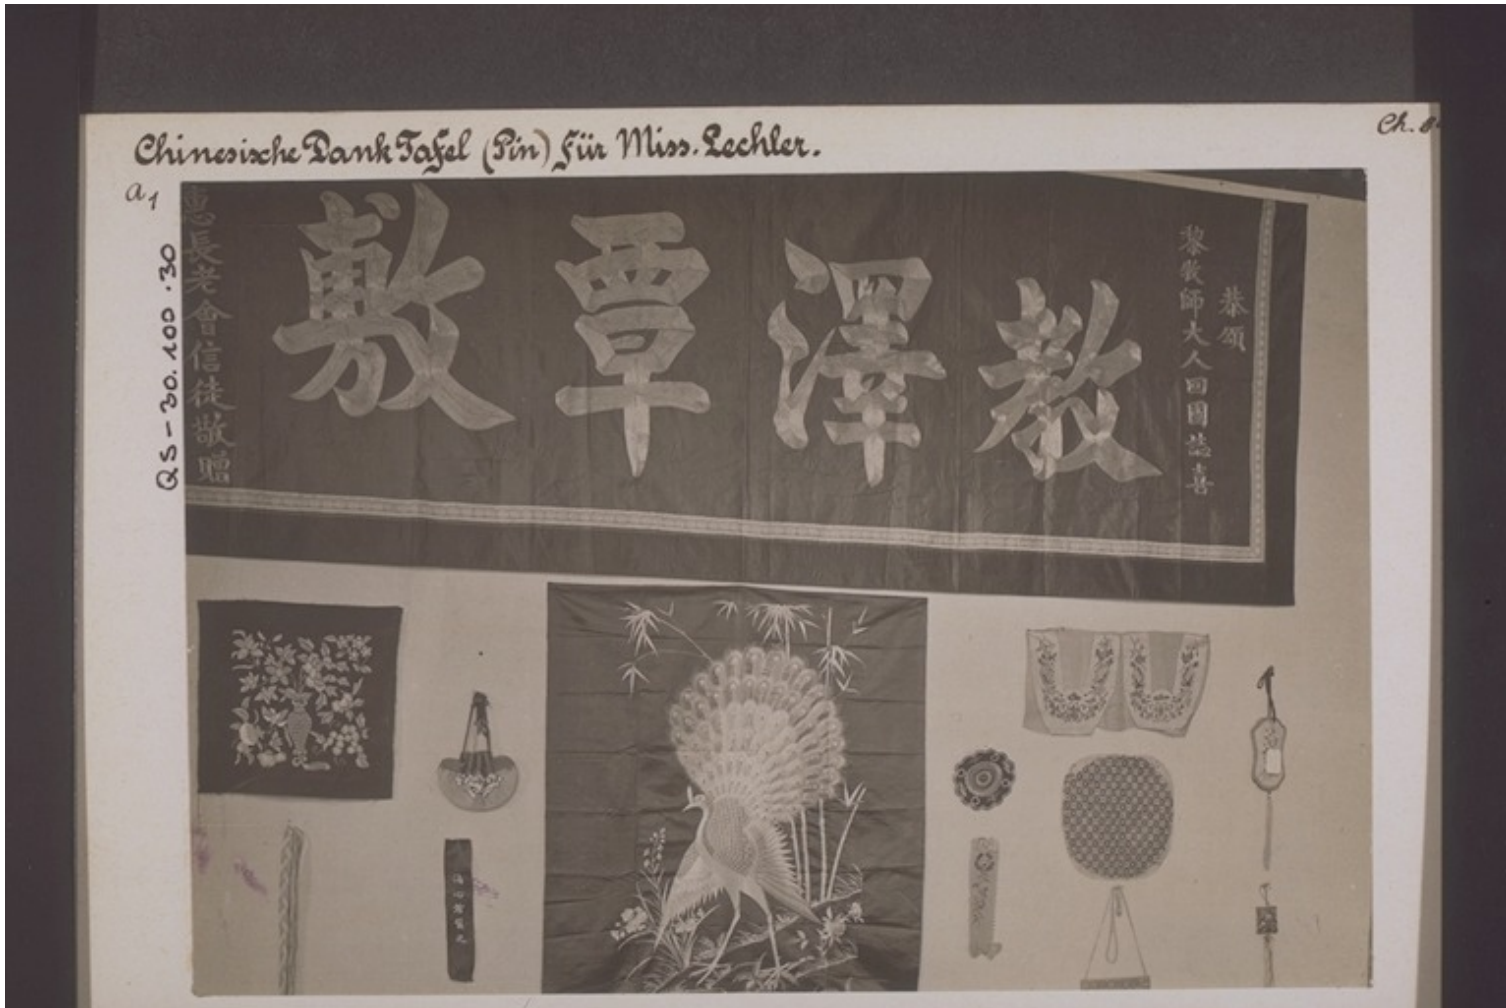 Chinesische Dank Tafel (Pin) für Miss. Lechler.
Ch.
a1
QS-30.100.30
恭頌
黎教師大人回國誌喜
教澤覃敷
惠長老會信徒敬贈